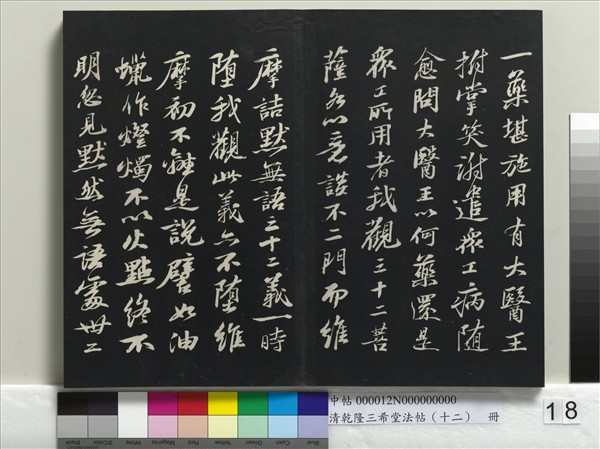 一藥堪施用有大醫王
拊掌笑謝遣眾工病隨
愈問大醫王以何藥還是
眾工所用者我觀三十二菩
薩各以意談不二門而維
摩詰默無語三十二義一時
墮我觀此義亦不墮維
摩初不離是說譬如油
蠟作燈燭不以火點終不
明忽見默然無語處卅二
中帖 000012N000000000
清乾隆三希堂法帖（十二） 冊
18
Black
3/Color
White
Magenta
Red
Yellow
Green
Cyan
Blue